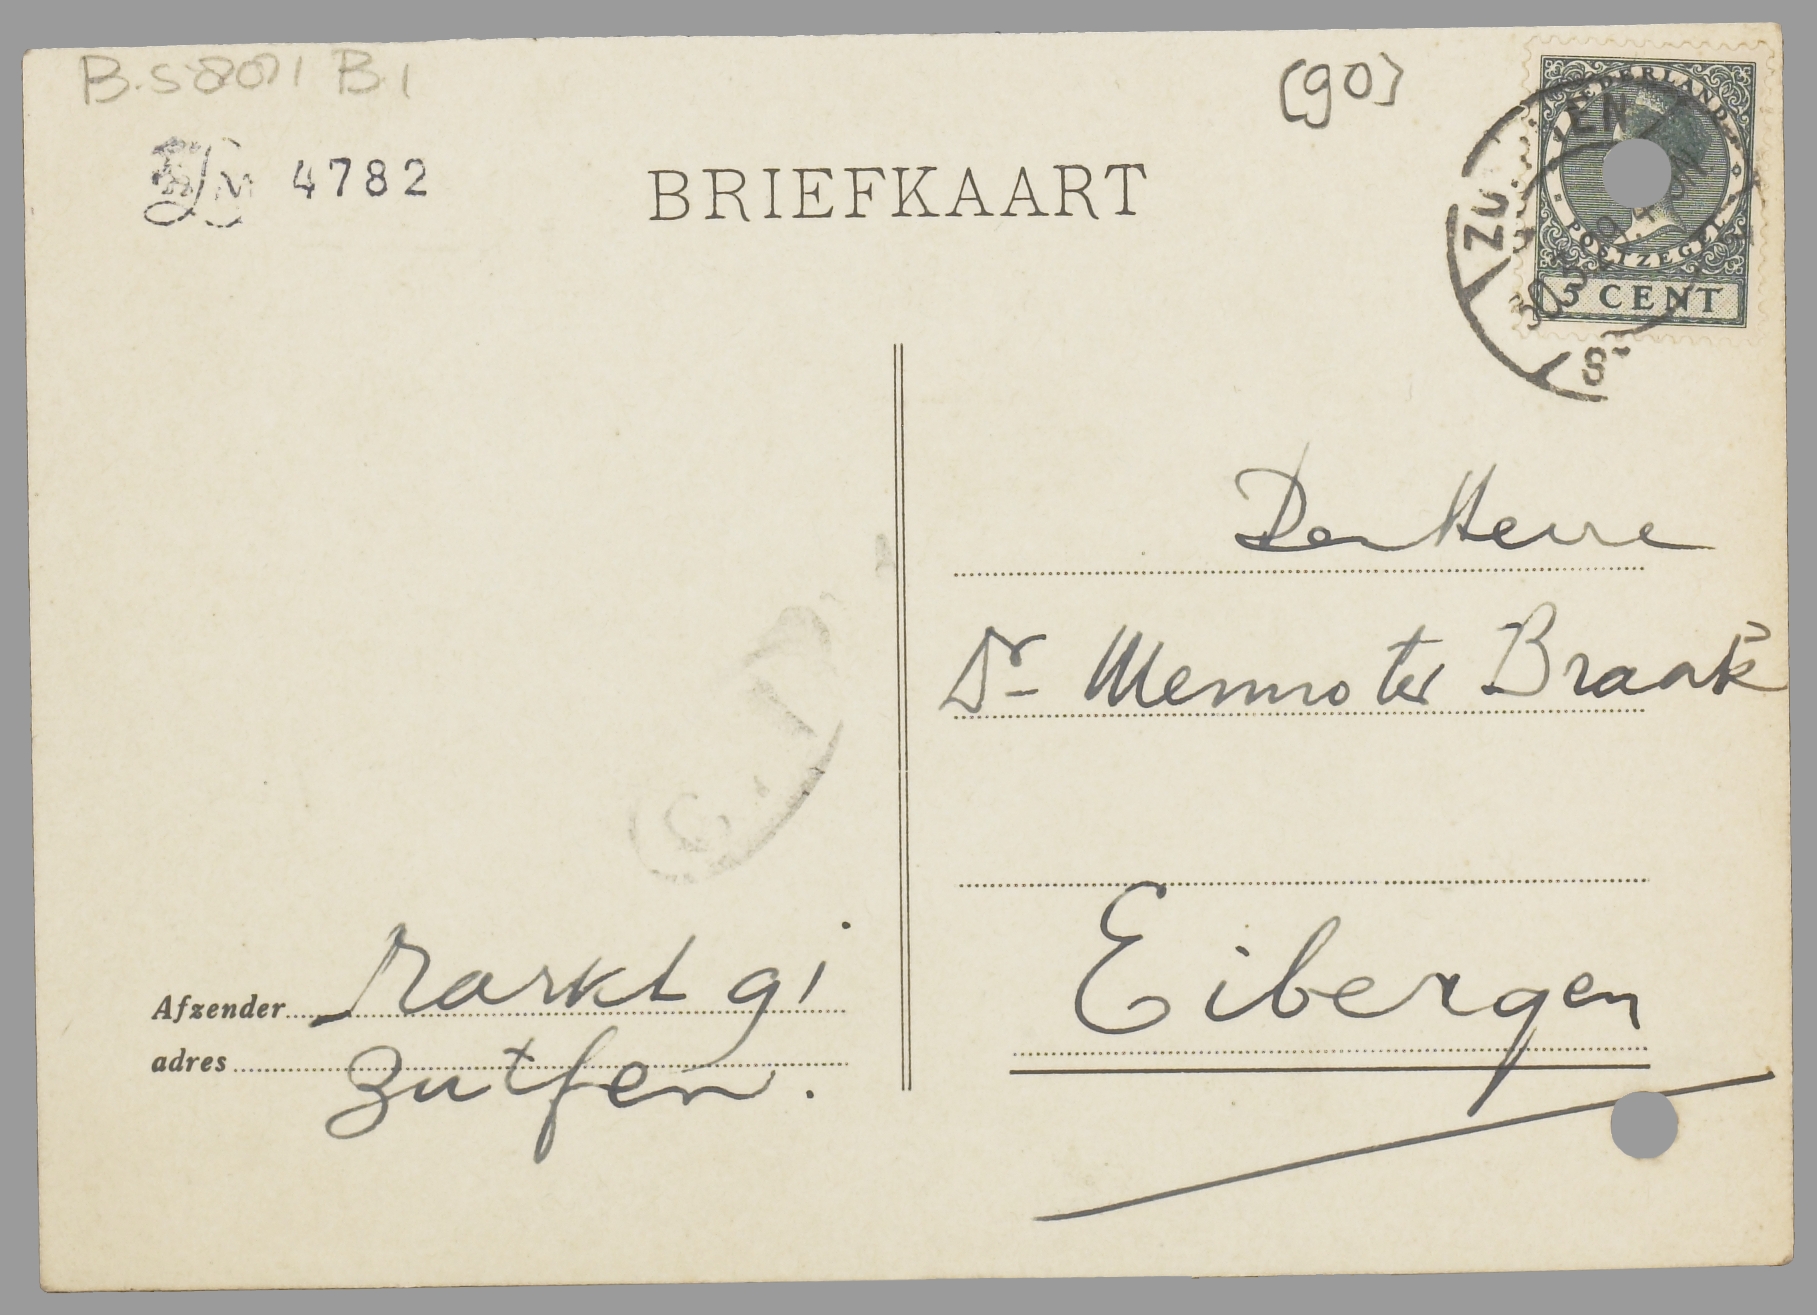 B.58091 B.1
[90]
LM 4782
BRIEFKAART
NEDERLAND
POSTZEGEL
5 CENT
Den Heere
Dr Menno ter Braak
Eibergen
Afzender Markt 91
adres Zutfen.